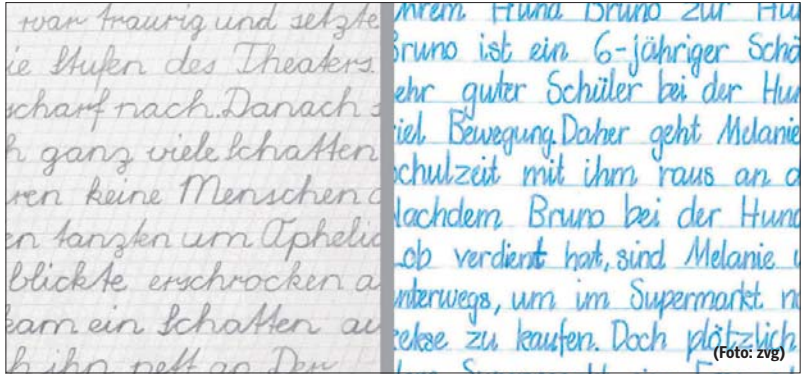 war traurig und setzte
ie Stufen des Theaters.
scharf nach. Danach s
h ganz viele Schatten
ren keine Menschen
en tanzten um Ophelia
blickte erschrocken a
kam ein Schatten au
h ihn nett an Der
ihrem Hund Bruno zur Hu
Bruno ist ein 6-jähriger Schä
ehr guter Schüler bei der Hun
viel Bewegung. Daher geht Melanie
schulzeit mit ihm raus an d
Nachdem Bruno bei der Hund
Lob verdient hat, sind Melanie u
unterwegs, um im Supermarkt n
ekse zu kaufen. Doch plötzlich
(Foto: zvg)